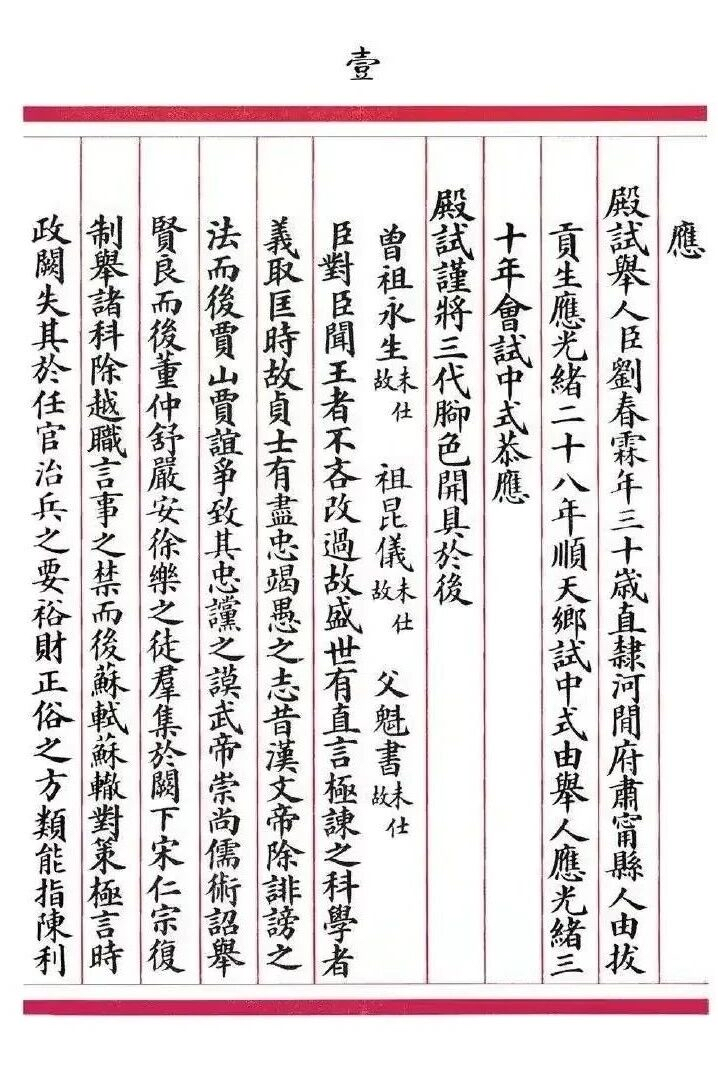 壹
應
殿試舉人臣劉春霖年三十歲直隸河間府肅甯縣人由拔
貢生應光緒二十八年順天鄉試中式由舉人應光緒三
十年會試中式恭應
殿試謹將三代腳色開具於後
曾祖永生未仕故 祖昆儀未仕故 父魁書未仕故
臣對臣聞王者不吝改過故盛世有直言極諫之科學者
義取匡時故貞士有盡忠竭愚之志昔漢文帝除誹謗之
法而後賈山賈誼爭致其忠讜之謨武帝崇尚儒術詔舉
賢良而後董仲舒嚴安徐樂之徒羣集於闕下宋仁宗復
制舉諸科除越職言事之禁而後蘇軾蘇轍對策極言時
政闕失其於任官治兵之要裕財正俗之方類能指陳利